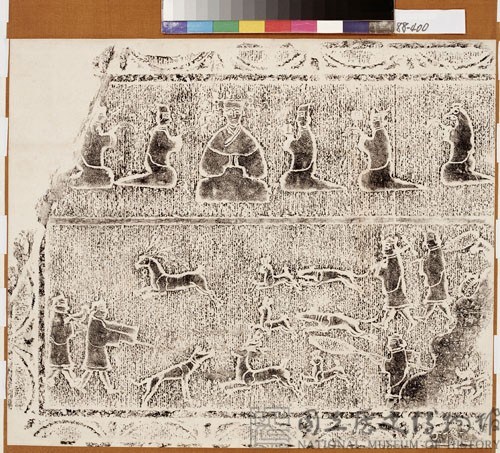 88-400
國立歷史博物館
NATIONAL MUSEUM OF HISTORY